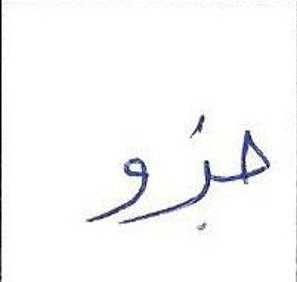 جزو